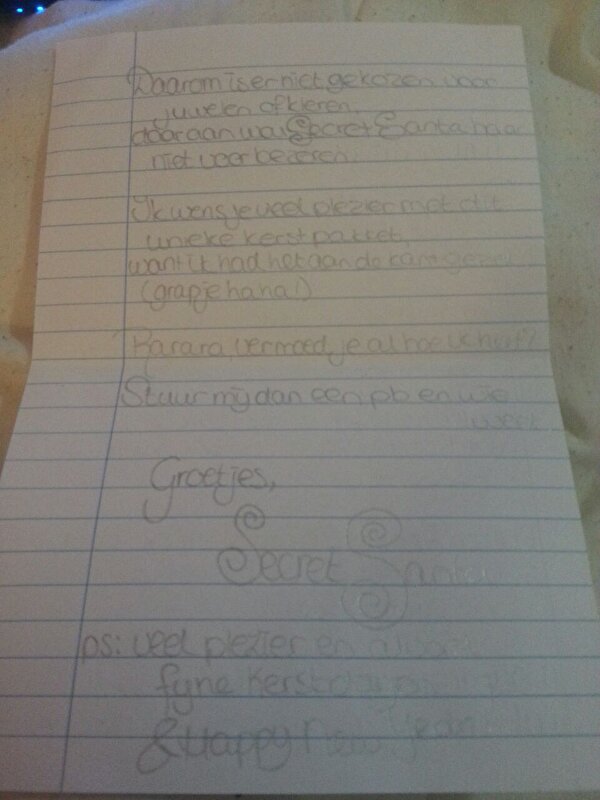 Daarom is er niet gekozen voor
juwelen of kleren,
daaraan wou Secret Santa haar
niet voor bezeren.
Ik wens je veel plezier met dit
unieke kerstpakket,
want ik had het aan de kant gezet
(grapje haha!)
vermoed je al hoe ik heet?
Stuur mij dan een pb en wie
weet
Groetjes,
Secret Santa
ps: veel plezier en alvast
fijne kerstdagen
& Happy New Year